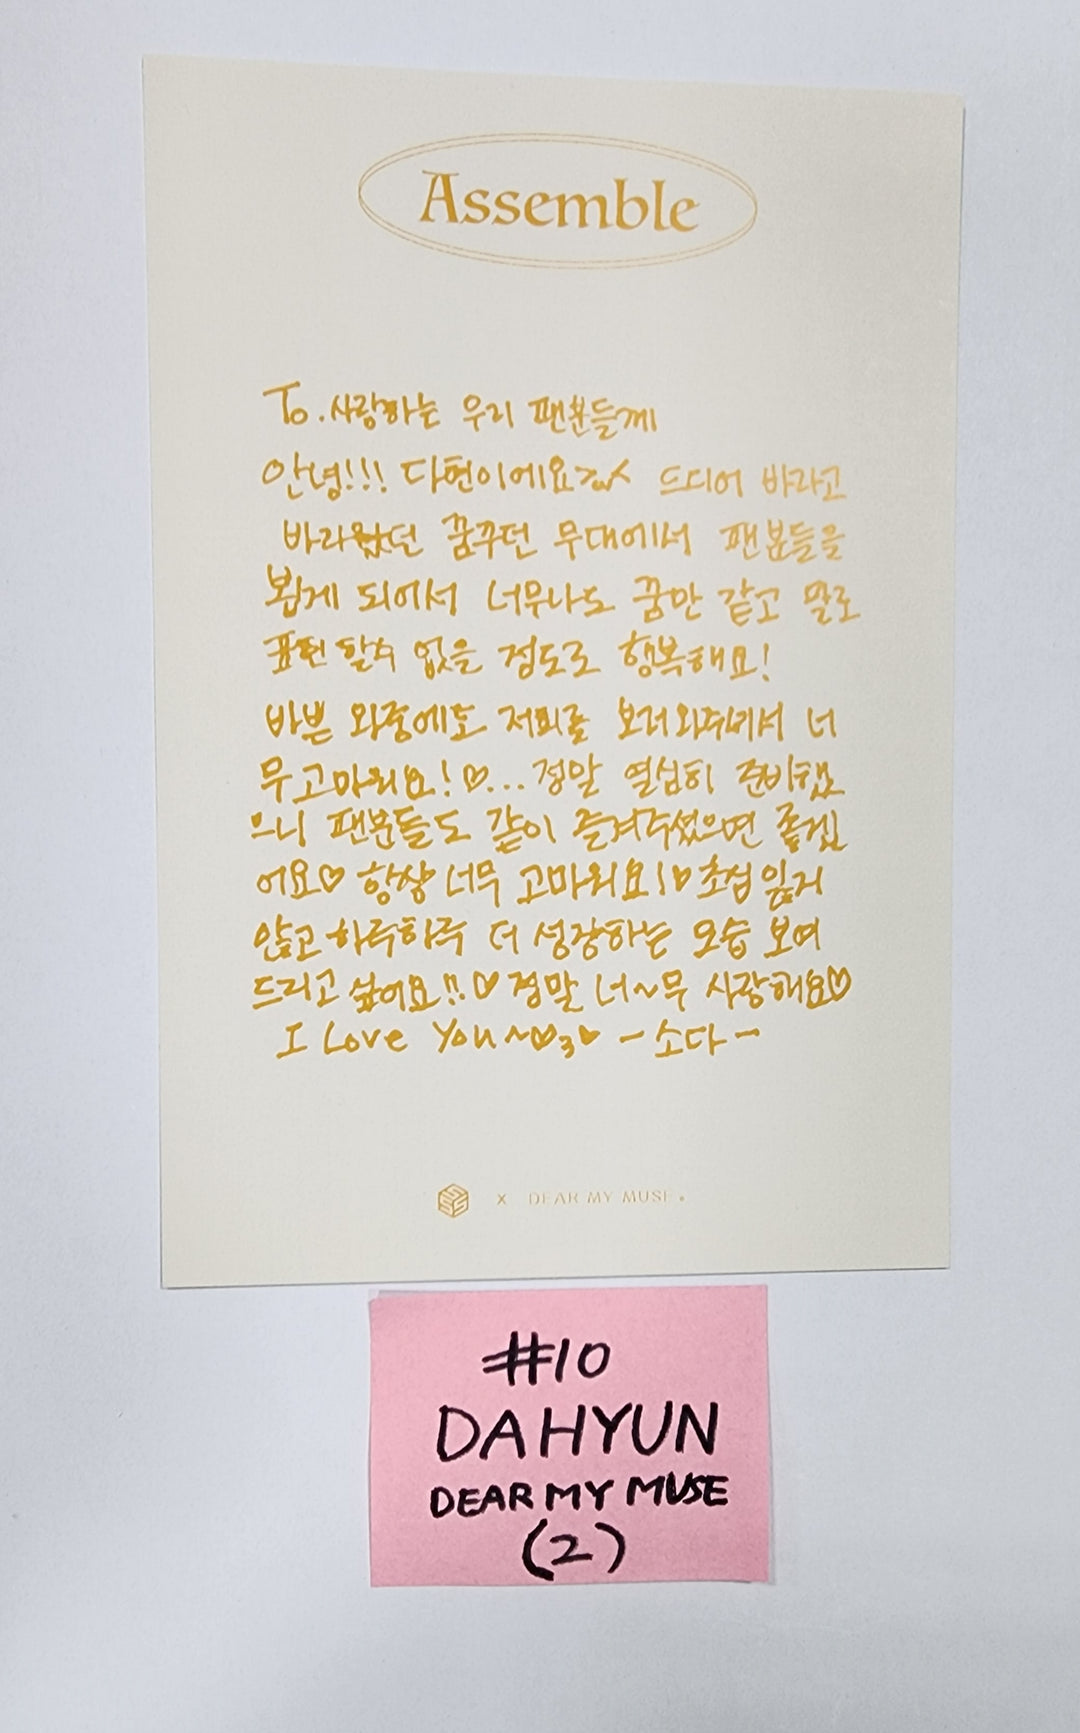 Assemble
To. 사랑하는 우리 팬분들께
안녕!!! 다현이에요 드디어 바라고
바라왔던 꿈꾸던 무대에서 팬분들을
뵙게 되어서 너무나도 꿈만 같고 말로
표현 할수 없을 정도로 행복해요!
바쁜 와중에도 저희를 보러와주셔서 너
무 고마워요!♡... 정말 열심히 준비했
으니 팬분들도 같이 즐겨주셨으면 좋겠
어요♡ 항상 너무 고마워요!♥ 초심 잃지
않고 하루하루 더 성장하는 모습 보여
드리고 싶어요!!♡ 정말 너~무 사랑해요♡
I Love You~♡3♥ -소다-
X DEAR MY MUSE.
#10
DAHYUN
DEAR MY MUSE
(2)